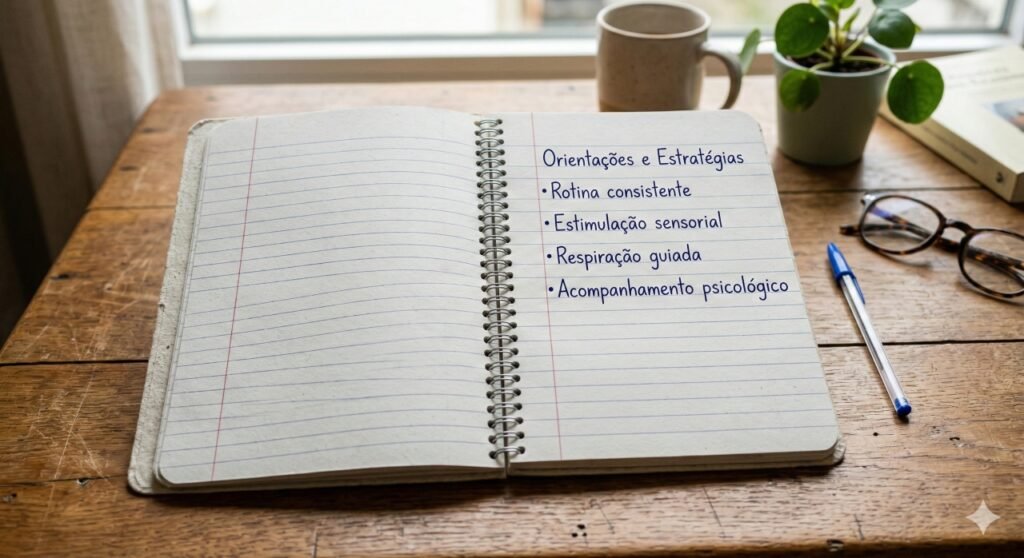 Orientações e Estratégias
• Rotina consistente
• Estimulação sensorial
• Respiração guiada
• Acompanhamento psicológico